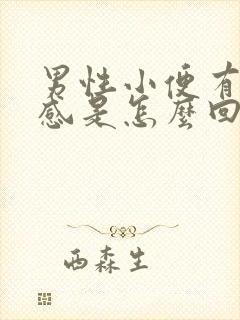 男性小便有
感是怎麼回
西森生